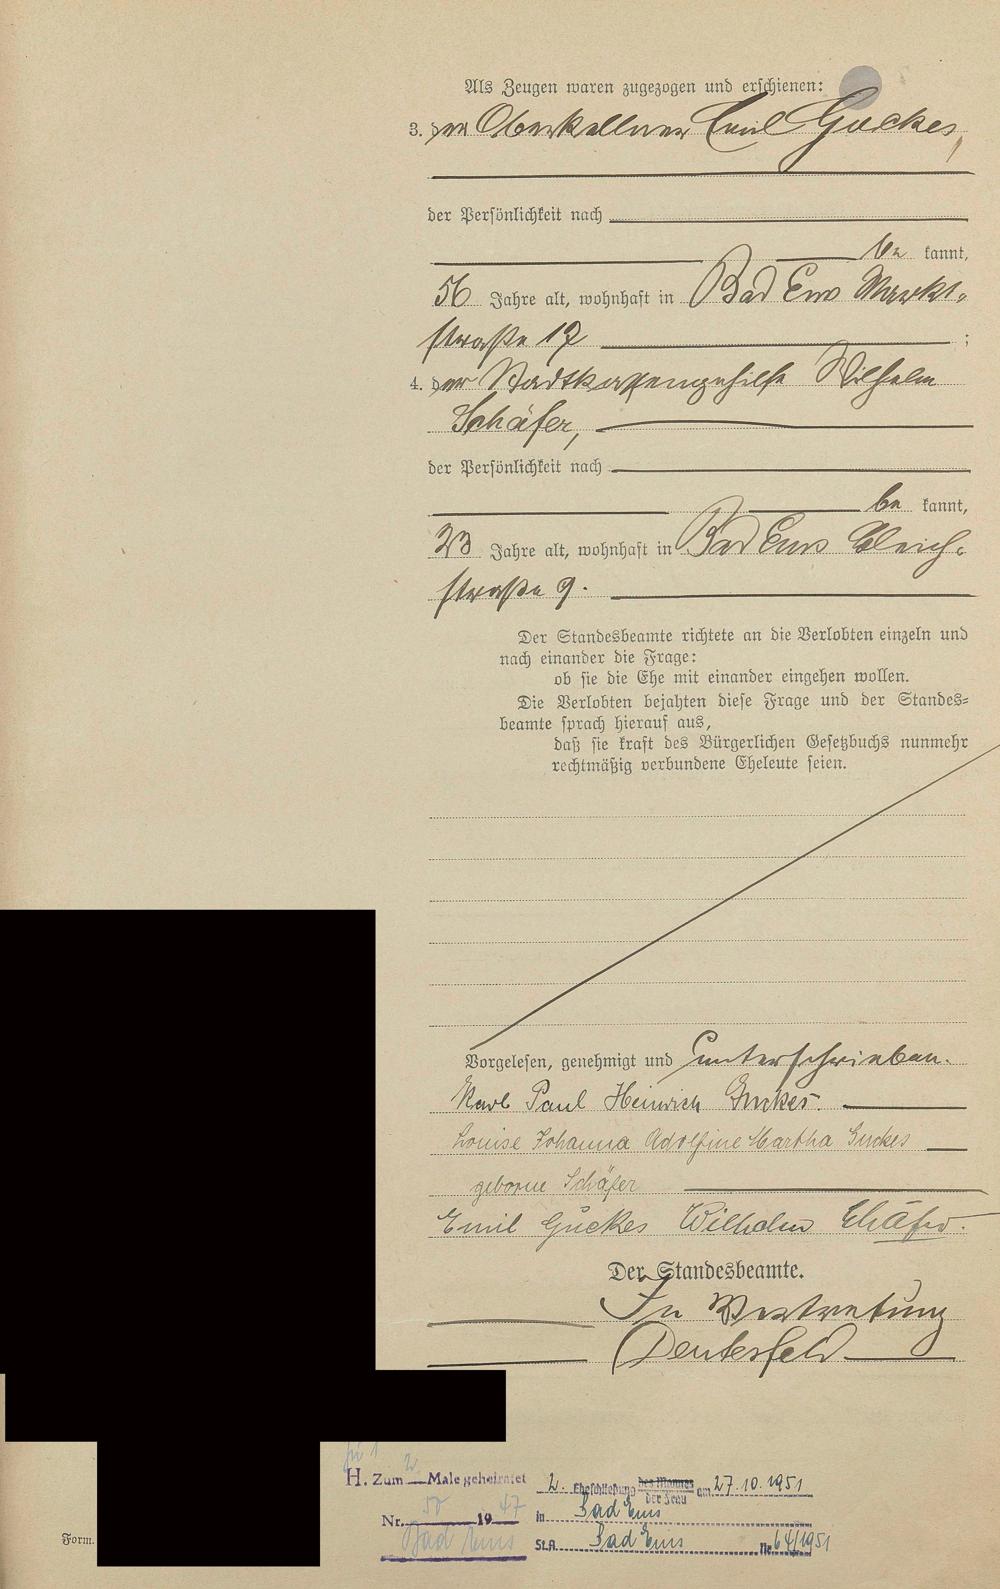 Als Zeugen waren zugezogen und erschienen:
3. der Oberkellner Emil Guckes,
der Persönlichkeit nach
be kannt,
56 Jahre alt, wohnhaft in Bad Ems Markt-
straße 17 ;
4. der Stadtkassengehilfe Wilhelm
Schäfer,
der Persönlichkeit nach
be kannt,
23 Jahre alt, wohnhaft in Bad Ems Bleich-
straße 9.
Der Standesbeamte richtete an die Verlobten einzeln und
nach einander die Frage:
ob sie die Ehe mit einander eingehen wollen.
Die Verlobten bejahten diese Frage und der Standes-
beamte sprach hierauf aus,
daß sie kraft des Bürgerlichen Gesetzbuchs nunmehr
rechtmäßig verbundene Eheleute seien.
Vorgelesen, genehmigt und unterschrieben.
Karl Paul Heinrich Guckes.
Louise Johanna Adolfine Martha Guckes
geborne Schäfer
Emil Guckes Wilhelm Schäfer.
Der Standesbeamte.
In Vertretung
H. Zum 2. Male geheiratet
Nr. 50 1947
Bad Ems
2. Eheschließung des Mannes der Frau am 27.10.1951
in Bad Ems
St.A. Bad Ems Nr. 64/1951
Form.